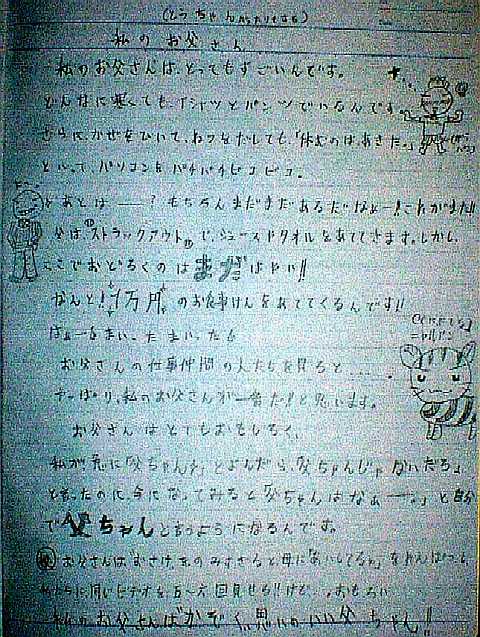 私のお父さん
私のお父さんは、とってもすごいんです。
どんなに寒くても、Tシャツとパンツでいるんです
さらに、かぜをひいて、ねつをだしても、「休むのはあきた。」
といって、パソコンをパチパチピコピコ。
あとは ー? もちろんまだまだあるだなぁー!これがまた!!
父は"ストラックアウト"で、ジュースやタオルをあててきます。しかし、
ここでおどろくのはまだはやい!!
なんと!1万円のお食事けんをあててくるんです!!
はぁーまいった まいった
お父さんの仕事仲間の人たちを見ると……
やっぱり、私のお父さんが一番だ!と思います。
お父さんはとてもおもしろく、
私が先に「父ちゃん」とよんだら、「父ちゃんじゃないだろ」
といったのに、今になってみると「父ちゃんはなぁー。」と自分
で父ちゃんと言うようになるんです。
お父さんは、おさけをのみすぎると母に「あいしてるよ」
同じビデオを5〜6回見せる!!けど…おもろい
私のお父さんは 思いのいい父ちゃん!!